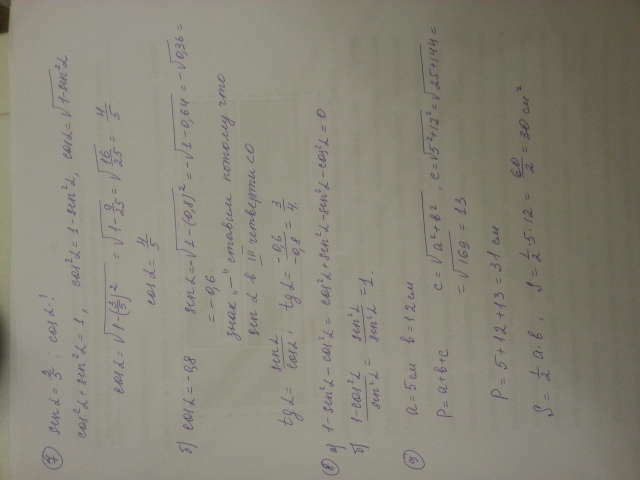 ⑦ sin α = 3/5 · cos α?
cos²α + sin²α = 1, cos²α = 1 - sin²α, cos α = √(1 - sin²α)
cos α = √(1 - (3/5)²) = √(1 - 9/25) = √(16/25) = 4/5
cos α = 4/5
б) cos α = -0,8 sin α = -√(1 - (0,8)²) = -√(1 - 0,64) = -√0,36 =
= -0,6.
знак „-" ставим потому что
sin α в III четверти <0
tg α = sin α/cos α, tg α = -0,6/-0,8 = 3/4.
⑧ а) 1 - sin²α - cos²α = cos²α + sin²α - sin²α - cos²α = 0
б) (1 - cos²α)/sin²α = sin²α/sin²α = 1.
⑨ a = 5 см b = 12 см
P = a + b + c c = √(a² + b²), c = √(5² + 12²) = √(25 + 144) =
= √169 = 13
P = 5 + 12 + 13 = 31 см
S = 1/2 a · b, S = 1/2 · 5 · 12 = 60/2 = 30 см²